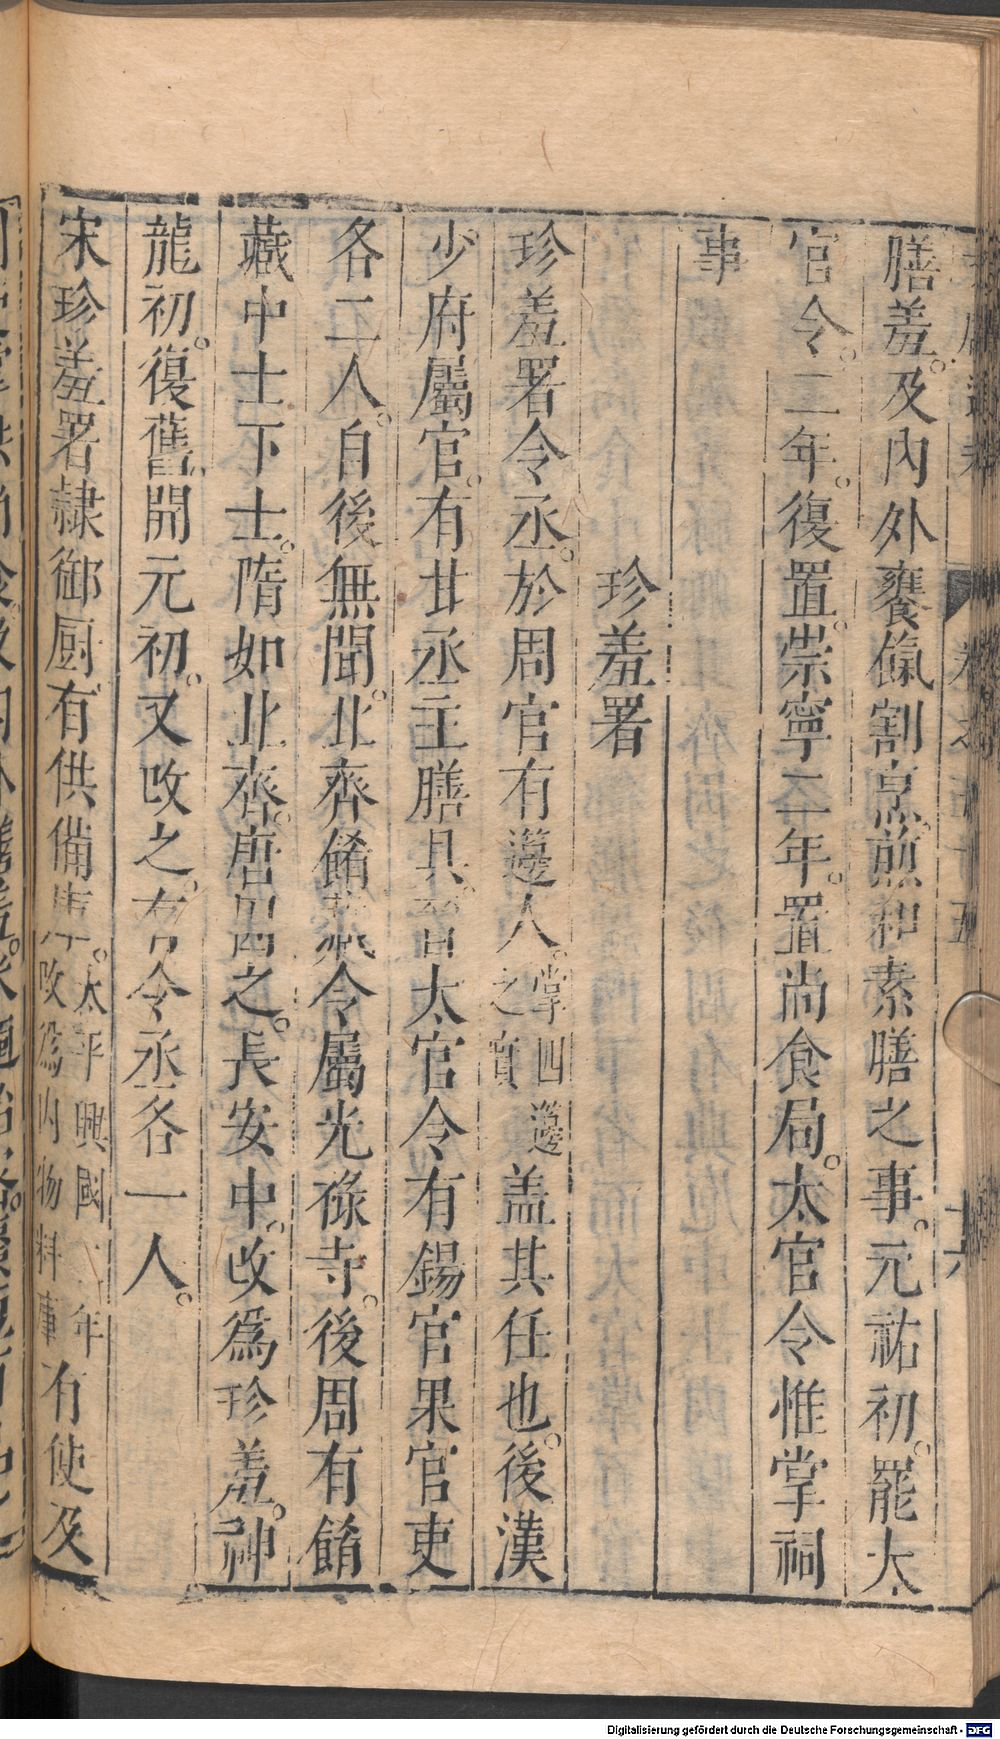 膳羞。及內外饔餼割烹煎和素膳之事。元祐初。罷太
官令。二年。復置。崇寧二年。置尚食局。太官令惟掌祠
事
珍羞署
珍羞署令丞。於周官有籩人。掌四籩之實蓋其任也。後漢
少府屬官。有甘丞主膳具。太官令有錫官果官吏
各二人。自後無聞。北齊餚藏令屬光祿寺。後周有餚
藏中士下士。隋如北齊。唐因之。長安中。改為珍羞。神
龍初。復舊。開元初。又改之。有令丞各一人。
宋珍羞署隸御厨。有供備庫。太平興國年改為內物料庫有使及
卷之
六
Digitalisierung gefördert durch die Deutsche Forschungsgemeinschaft - DFG